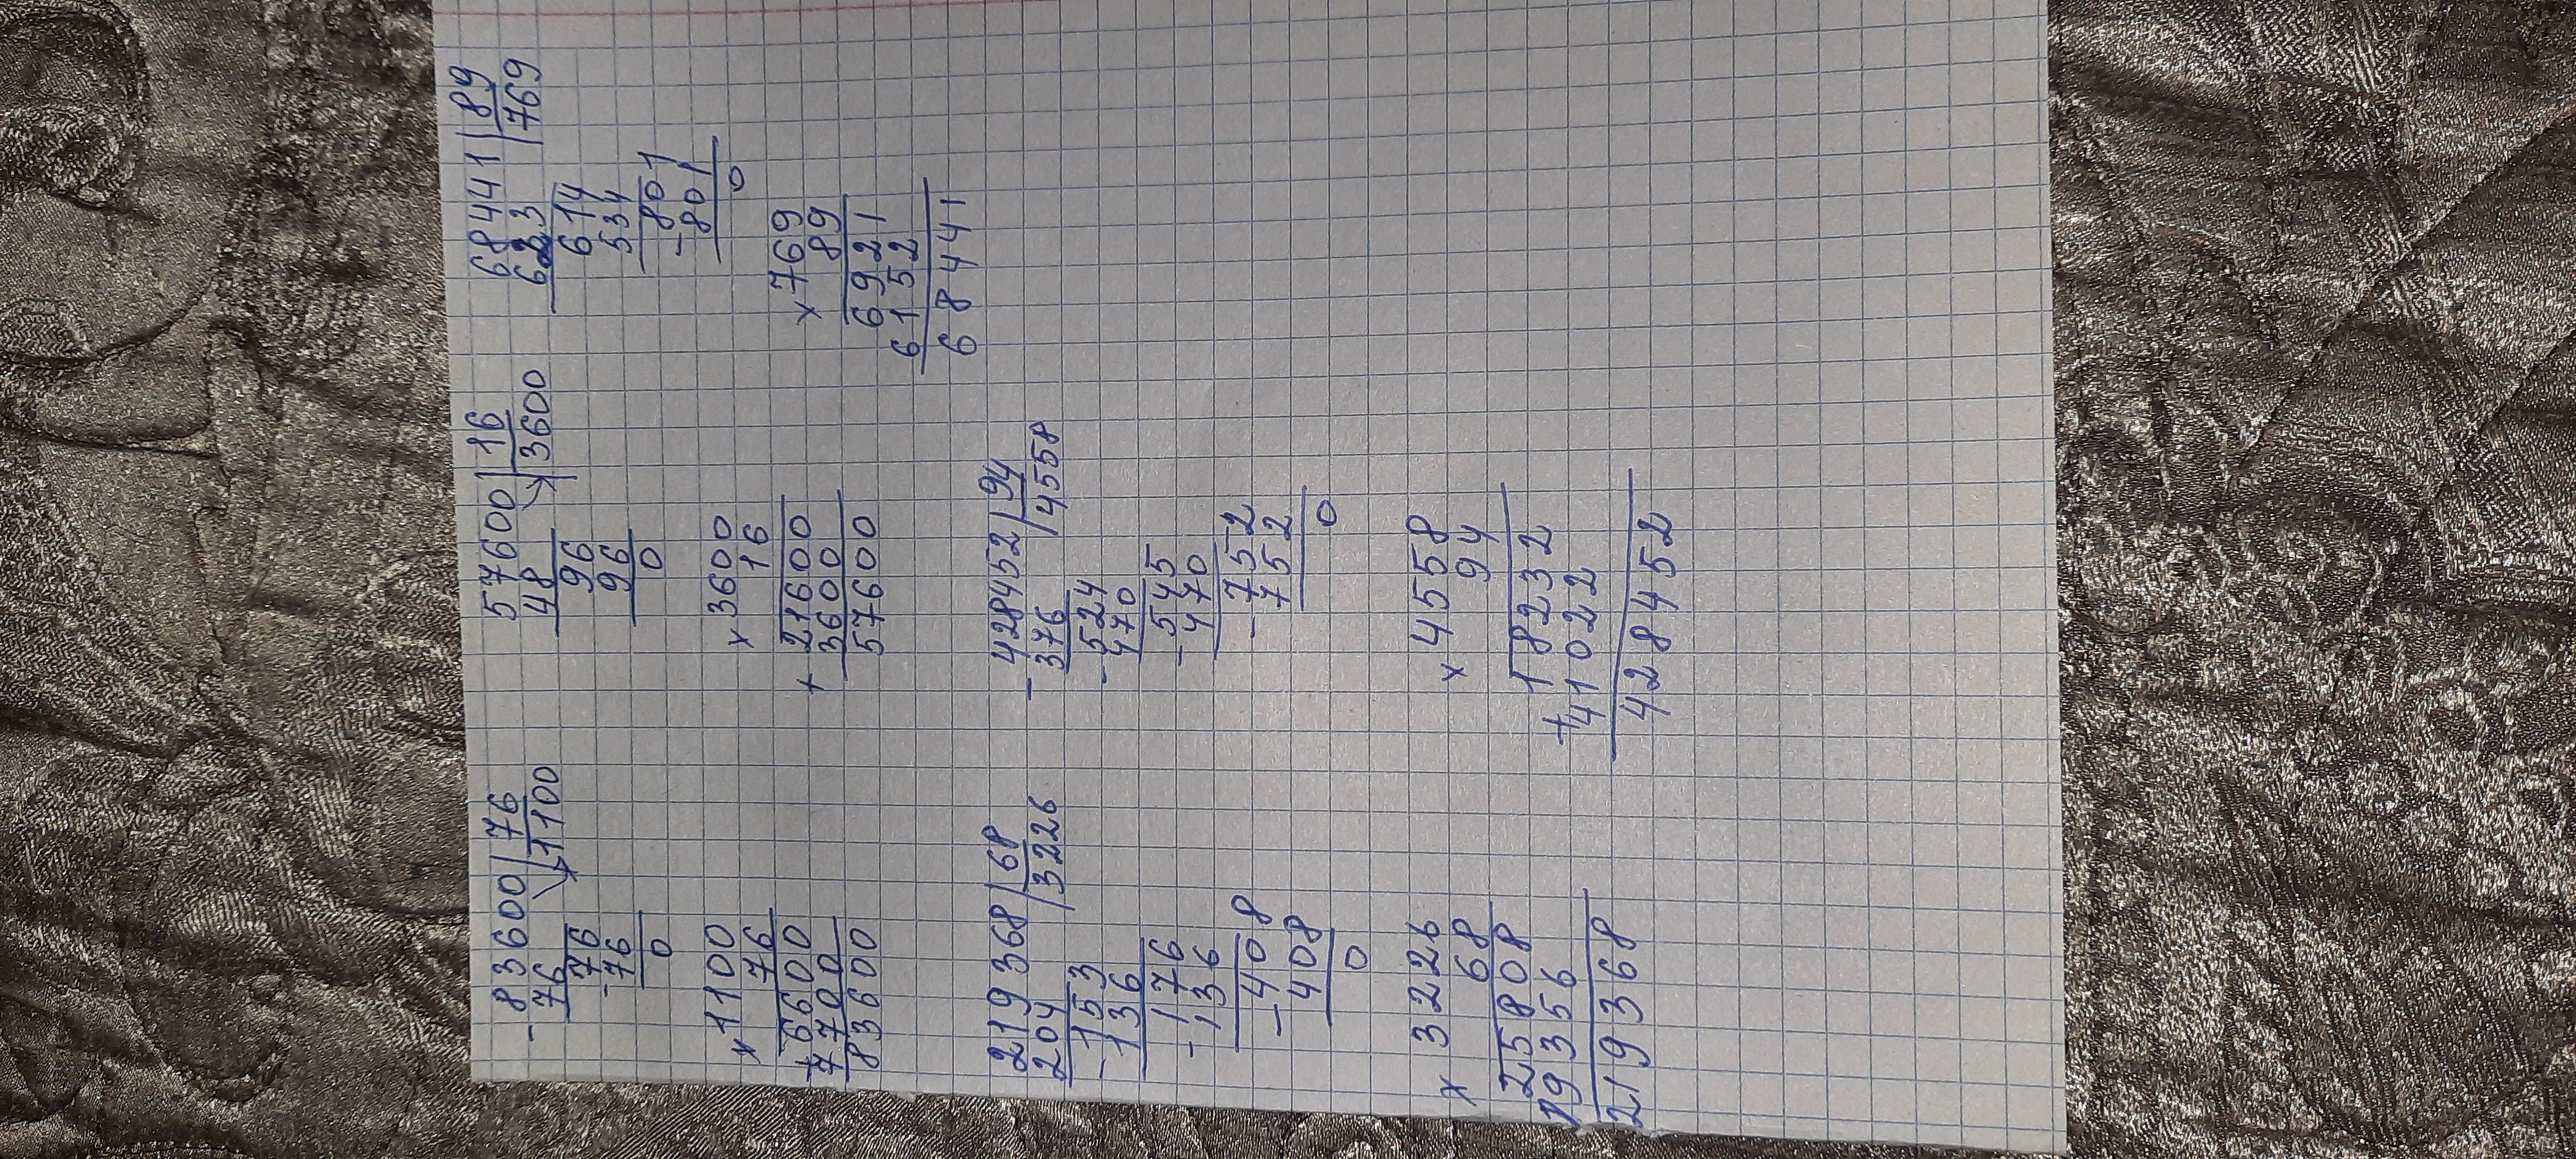 83600 | 76
- 76 | 1100
76
- 76
0
× 1100
76
+ 6600
7700
83600
57600 | 16
48 | 3600
96
96
0
× 3600
16
+ 21600
3600
57600
68441 | 89
623 | 769
614
534
- 801
801
0
× 769
89
6921
6152
68441
219368 | 68
204 | 3226
- 153
136
- 176
136
- 408
408
0
× 3226
68
25808
19356
219368
- 428452 | 94
376 | 4558
- 524
470
- 545
470
- 752
752
0
× 4558
94
18232
+ 41022
428452